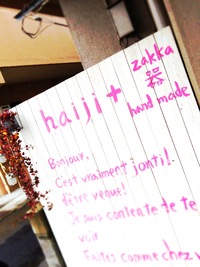 haiji+
zakka
器
hand made
Bonjour,
C'est vraiment jontil.
d'être venue!
Je suis contente de te
voir
Faites comme chez v